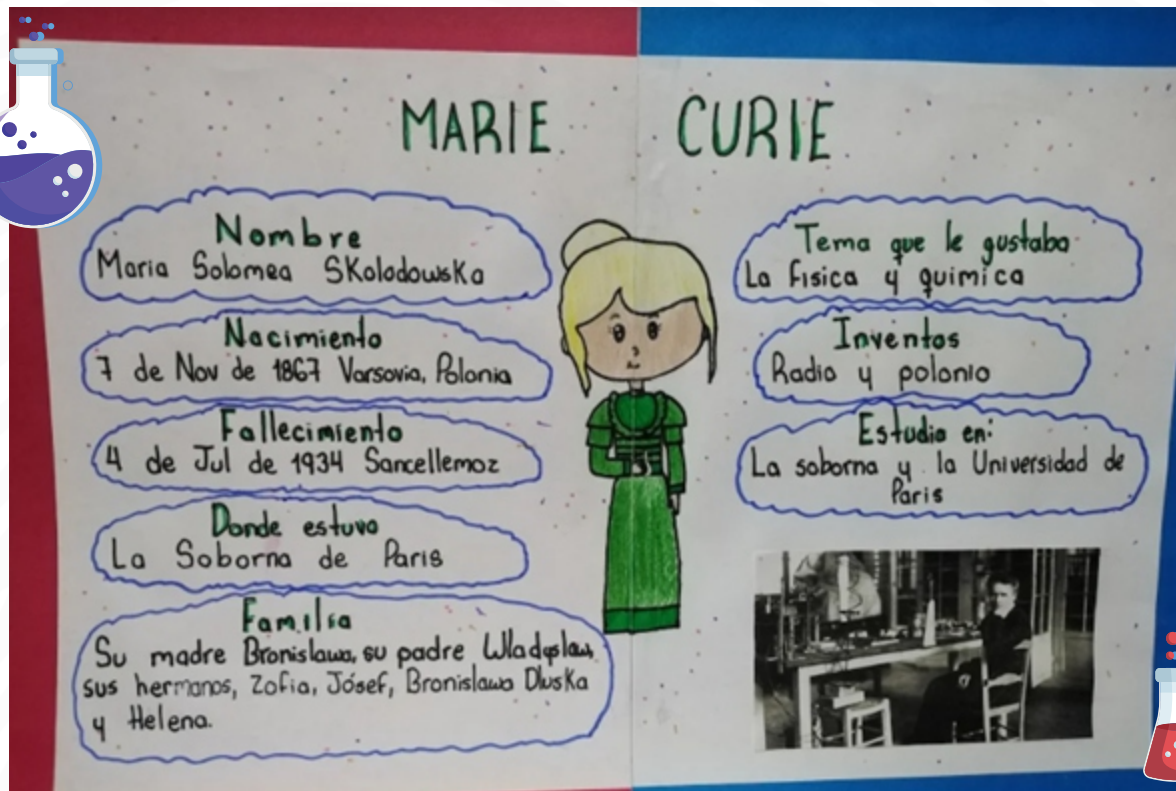 MARIE CURIE
Nombre
Maria Solomea SKolodowska
Nacimiento
7 de Nov de 1867 Varsovia, Polonia
Fallecimiento
4 de Jul de 1934 Sancellemoz
Donde estuvo
La Soborna de Paris
Familia
Su madre Bronislawa, su padre Wladyslaw,
sus hermanos, Zofia, Jósef, Bronislawa Dluska
y Helena.
Tema que le gustaba
La fisica y quimica
Inventos
Radio y polonio
Estudio en:
La soborna y la Universidad de
Paris